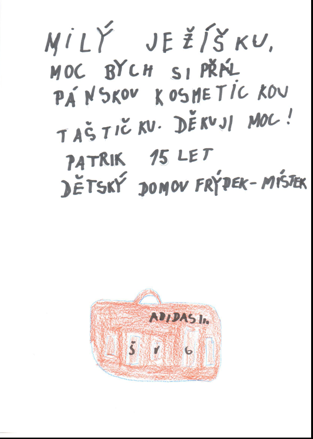 MILÝ JEŽÍŠKU,
MOC BYCH SI PŘÁL
PÁNSKOU KOSMETICKOU
TAŠTIČKU. DĚKUJI MOC!
PATRIK 15 LET
DĚTSKÝ DOMOV FRÝDEK-MÍSTEK
ADIDAS